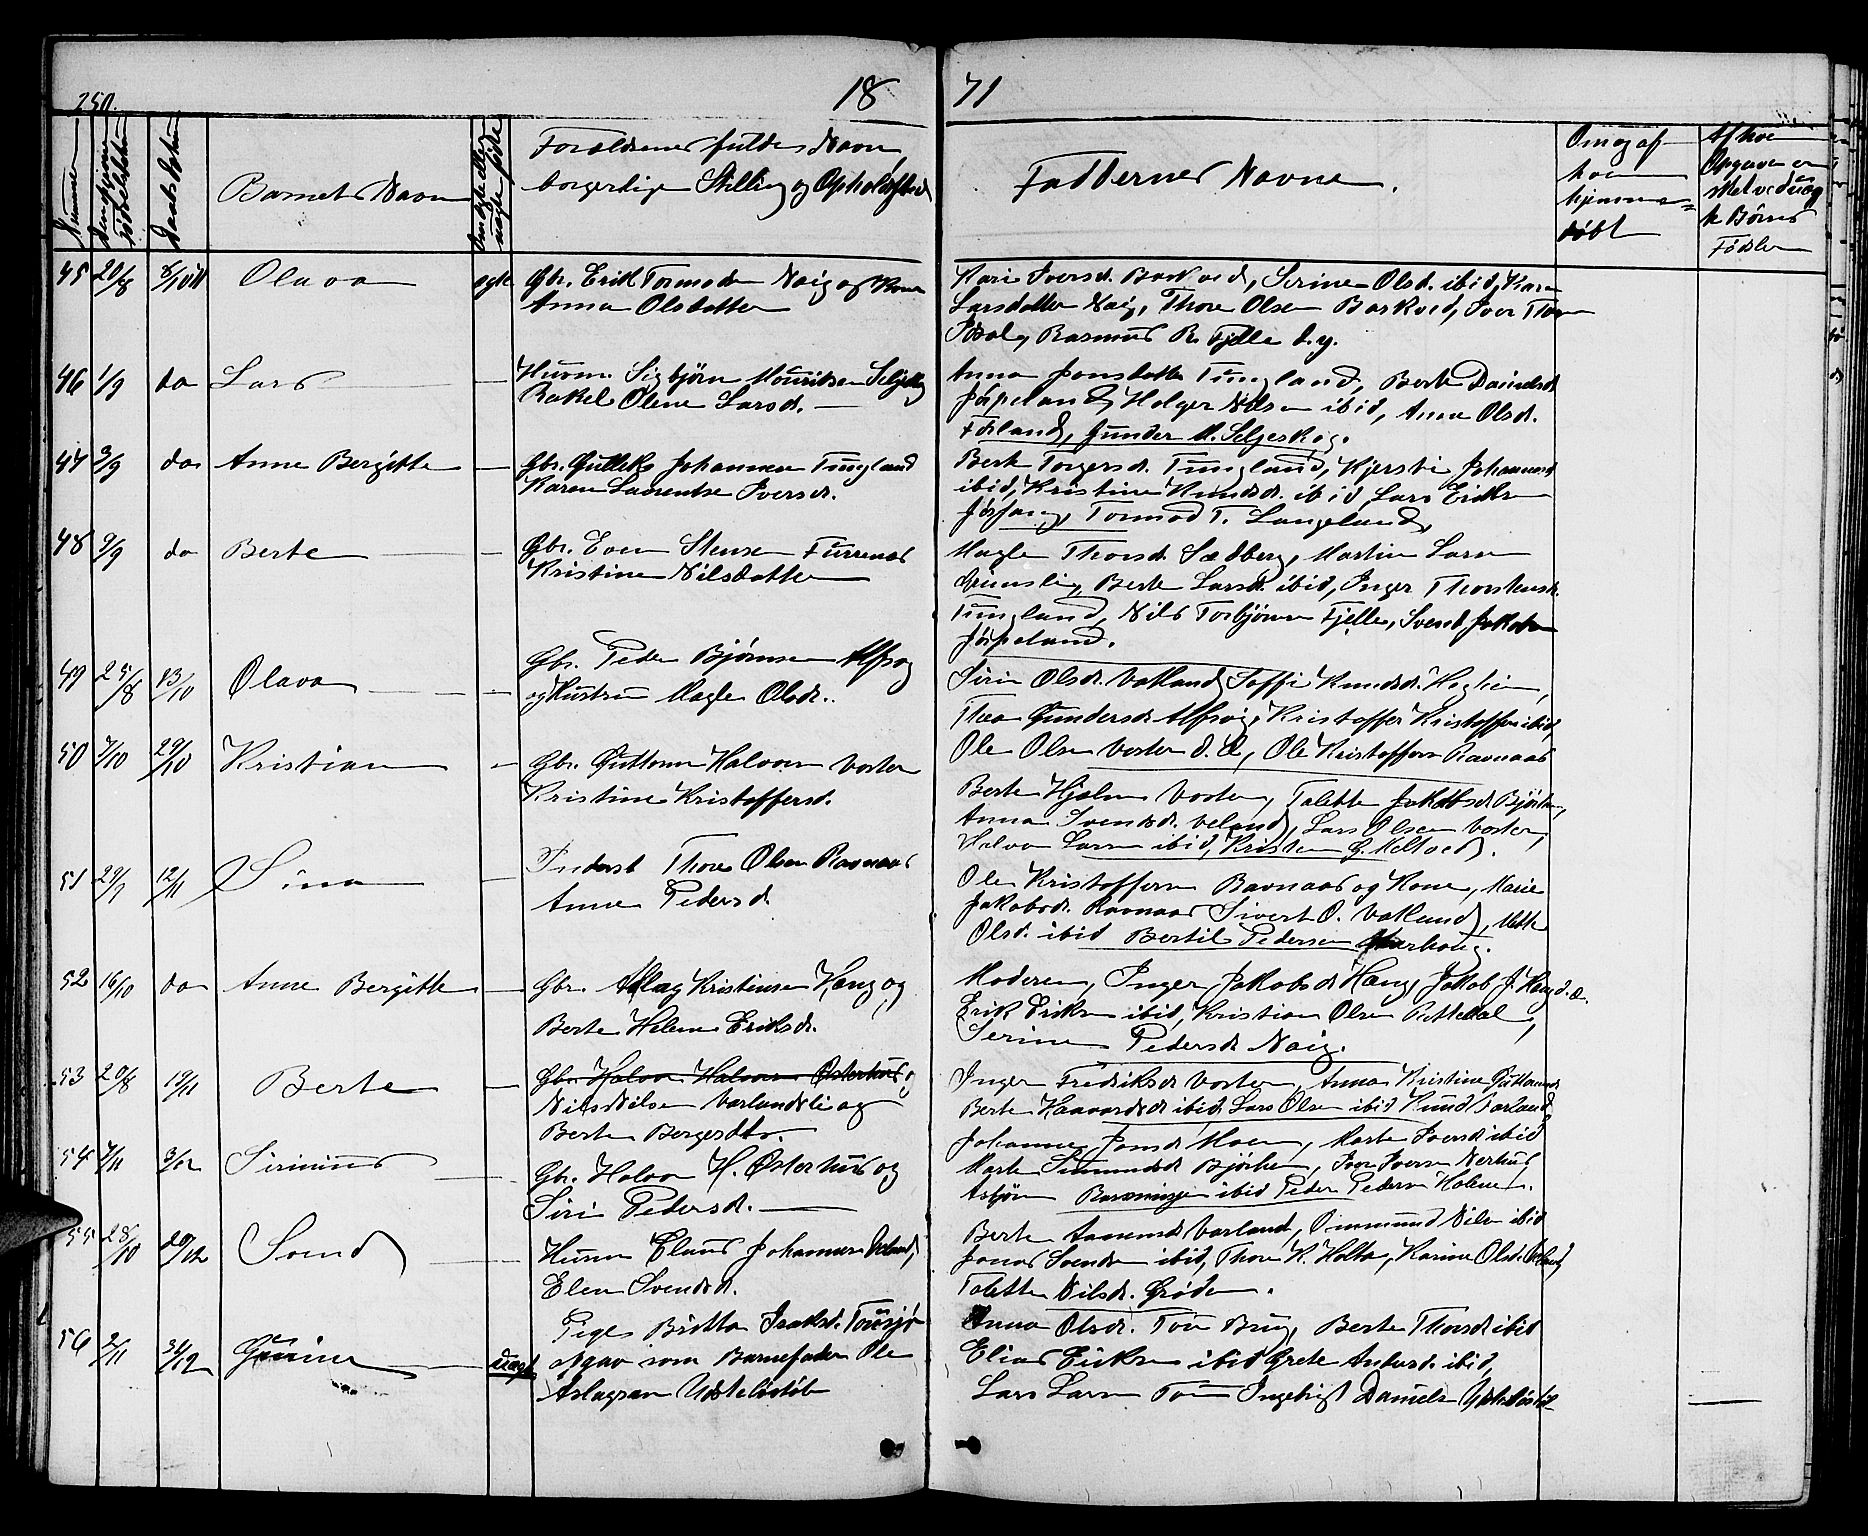 250.
18 71
Barnets Navn
Forældrenes fulde Navn,
borgerlige Stilling og Opholdssted
Faddernes Navne.
Om og af
hvem
hjemme=
døbt
Fødsler
45 20/8 8/10 Olava egte Gbr. Erik Tormodsen Naig og Kone
Anna Olsdatter
Kari Iversd. Barkved, Serine Olsd. ibid, Karen
Larsdatter Naig, Thore Olsen Barkved, Iver Thor
Rasmus R. Fjelle d.y.
46 1/9 do Lars Husm. Sigbjørn Mouritsen Seljeskog
Rakel Olene Larsd.
Anna Jonsdatter Tungland, Berte Danielsd
Jøpeland, Holger Nilsen ibid, Anne Olsd.
Førland, Gunder M. Seljeskog.
47 3/9 do Anne Bergitte Gbr. Gulleks Johannesen Tungland
Karen Laurentse Iversd.
Berte Torgersd. Tungland, Kjersti Johannesd
ibid, Kristine Knudsd. ibid Lars Eriksen
Jøsang, Tormod T. Langeland,
48 9/9 do Berte Gbr. Even Stensen Furrenes
Kristine Nilsdatter
Magle Thorsd. Sædberg, Martin Larsen
Grimsli, Berte Larsd. ibid, Inger Thorstensd.
Tungland, Nils Torbjørnsen Fjelle, Svend Jakobsen
Jøpeland.
49 25/8 13/10 Olava Gbr. Peder Bjørnsen Alfsog
og Hustru Magle Olsd.
Siri Olsd. Vatland, Soffi Knudsd.
Thea Gundersd. Alfsog, Kristoffer Kristoffersen ibid,
Ole Olsen Voster d.æ, Ole Kristoffersen Ravnaas
50 7/10 29/10 Kristian Gbr. Guttorm Halvorsen Voster
Kristine Kristoffersd.
Berte Hjælm Voster, Talette Jakobsd. Bjørheim,
Anna Svendsd. Veland, Lars Olsen Voster,
Halvor Larsen ibid, Kristen G. Meltved.
51 29/9 12/11 Sina Inderst Thore Olsen Ravnaas
Anne Pedersd.
Ole Kristoffersen Ravnaas og Kone, Marie
Jakobsd. Ravnaas Sivert O. Vatland, Mette
Olsd. ibid Bertil Pedersen
52 16/10 do Anne Bergitte Gbr. Aslag Kristensen Haug og
Berte Helene Eriksd.
Moderen, Inger Jakobsd. Haug, Jakob J. Haug d.æ.
Erik Eriksen ibid, Kristian Olsen
Serine Pedersd. Naig.
53 20/8 19/11 Berte Gbr. Halvor Halvorsen Østerhus og
Nils Nilsen Varlandsli og
Berte Bergersdtr.
Inger Fredriksd. Voster, Anna Kristine Guttormsd
Berte Haavardsd. ibid Lars Olsen ibid Knud Varland
54 7/11 3/12 Sirinius Gbr. Halvor H. Østerhus og
Siri Pedersd.
Johanne Jonsd. Moen, Marte Iversd. ibid
Marte Simonsd. Bjørheim, Iver Iversen Nerhus
Asbjørn ibid Peder Pedersen Holene.
55 28/10 29/12 Svend Husm Claus Johannesen Veland,
Elen Svendsd.
Berte Varland, Omund Nilsen ibid
Jonas Svendsen ibid, Thore K. Holta, Karine Olsd. Veland
Talette Nilsd. Grøden.
56 2/11 31/12 Gurine uægte Pige Britta Isaksd. Tousjø
opgav som Barnefader Ole
Aslagsen Udstelistøl
Anna Olsd. Tou Brug, Berte Thorsd. ibid
Elias Eriksen ibid Grete ibid,
Lars Larsen Tou Ingebrigt Danielsen